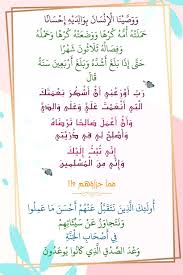 وَوَصَّيْنَا الْإِنْسَانَ بِوَالِدَيْهِ إِحْسَانًا
حَمَلَتْهُ أُمُّهُ كُرْهًا وَوَضَعَتْهُ كُرْهًا وَحَمْلُهُ
وَفِصَالُهُ ثَلَاثُونَ شَهْرًا
حَتَّى إِذَا بَلَغَ أَشُدَّهُ وَبَلَغَ أَرْبَعِينَ سَنَةً
قَالَ
رَبِّ أَوْزِعْنِي أَنْ أَشْكُرَ نِعْمَتَكَ
الَّتِي أَنْعَمْتَ عَلَيَّ وَعَلَى وَالِدَيَّ
وَأَنْ أَعْمَلَ صَالِحًا تَرْضَاهُ
وَأَصْلِحْ لِي فِي ذُرِّيَّتِي
إِنِّي تُبْتُ إِلَيْكَ
وَإِنِّي مِنَ الْمُسْلِمِينَ
فما جزاءهم ؟!!
أُولَئِكَ الَّذِينَ نَتَقَبَّلُ عَنْهُمْ أَحْسَنَ مَا عَمِلُوا
وَنَتَجَاوَزُ عَنْ سَيِّئَاتِهِمْ
فِي أَصْحَابِ الْجَنَّةِ
وَعْدَ الصِّدْقِ الَّذِي كَانُوا يُوعَدُونَ